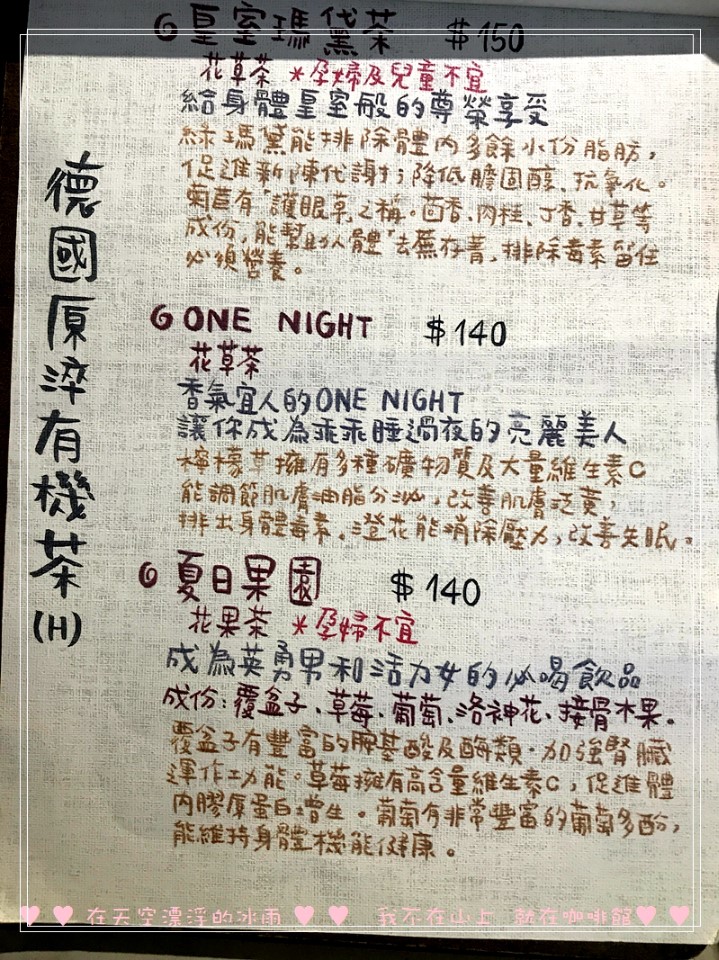 德國原淬有機茶(H)
6 皇室瑪黛茶 $150
花草茶 *孕婦及兒童不宜
給身體皇室般的尊榮享受
綠瑪黛能排除體內多餘水份脂肪,
促進新陳代謝;降低膽固醇、抗氧化。
菊苣有"護眼草"之稱。茴香、肉桂、丁香、甘草等
成份,能幫助人體"去蕪存菁",排除毒素留住
必須營養。
6 ONE NIGHT $140
花草茶
香氣宜人的ONE NIGHT
讓你成為乖乖睡過夜的亮麗美人
檸檬草擁有多種礦物質及大量維生素C
能調節肌膚油脂分泌,改善肌膚泛黃,
排出身體毒素.澄花能消除壓力,改善失眠。
6 夏日果園 $140
花果茶 *孕婦不宜
成為英勇男和活力女的必喝飲品
成份:覆盆子、草莓、葡萄、洛神花、接骨木果。
覆盆子有豐富的胺基酸及酶類.加強腎臟
運作功能。草莓擁有高含量維生素C,促進體
內膠原蛋白增生。葡萄有非常豐富的葡萄多酚,
能維持身體機能健康。
♥ ♥ 在天空漂浮的冰雨 ♥ ♥ 我不在山上 就在咖啡館 ♥ ♥